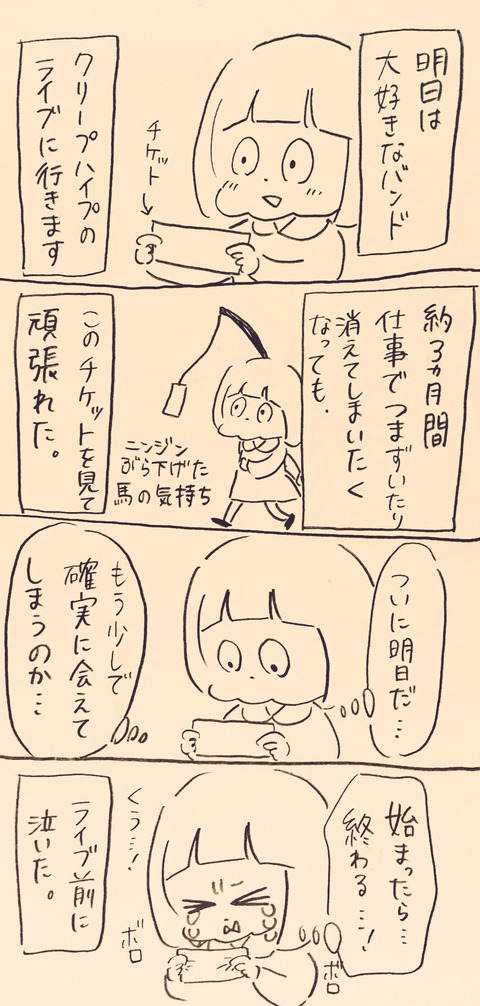 明日は
大好きなバンド
チケット→
クリープハイプの
ライブに行きます
約3ヵ月間
仕事でつまずいたり
消えてしまいたく
なっても、
ニンジン
ぶら下げた
馬の気持ち
このチケットを見て
頑張れた。
ついに明日だ…
もう少しで
確実に会えて
しまうのか…
始まったら…
終わる…!
くぅ…!
ボロ
ボロ
ライブ前に
泣いた。